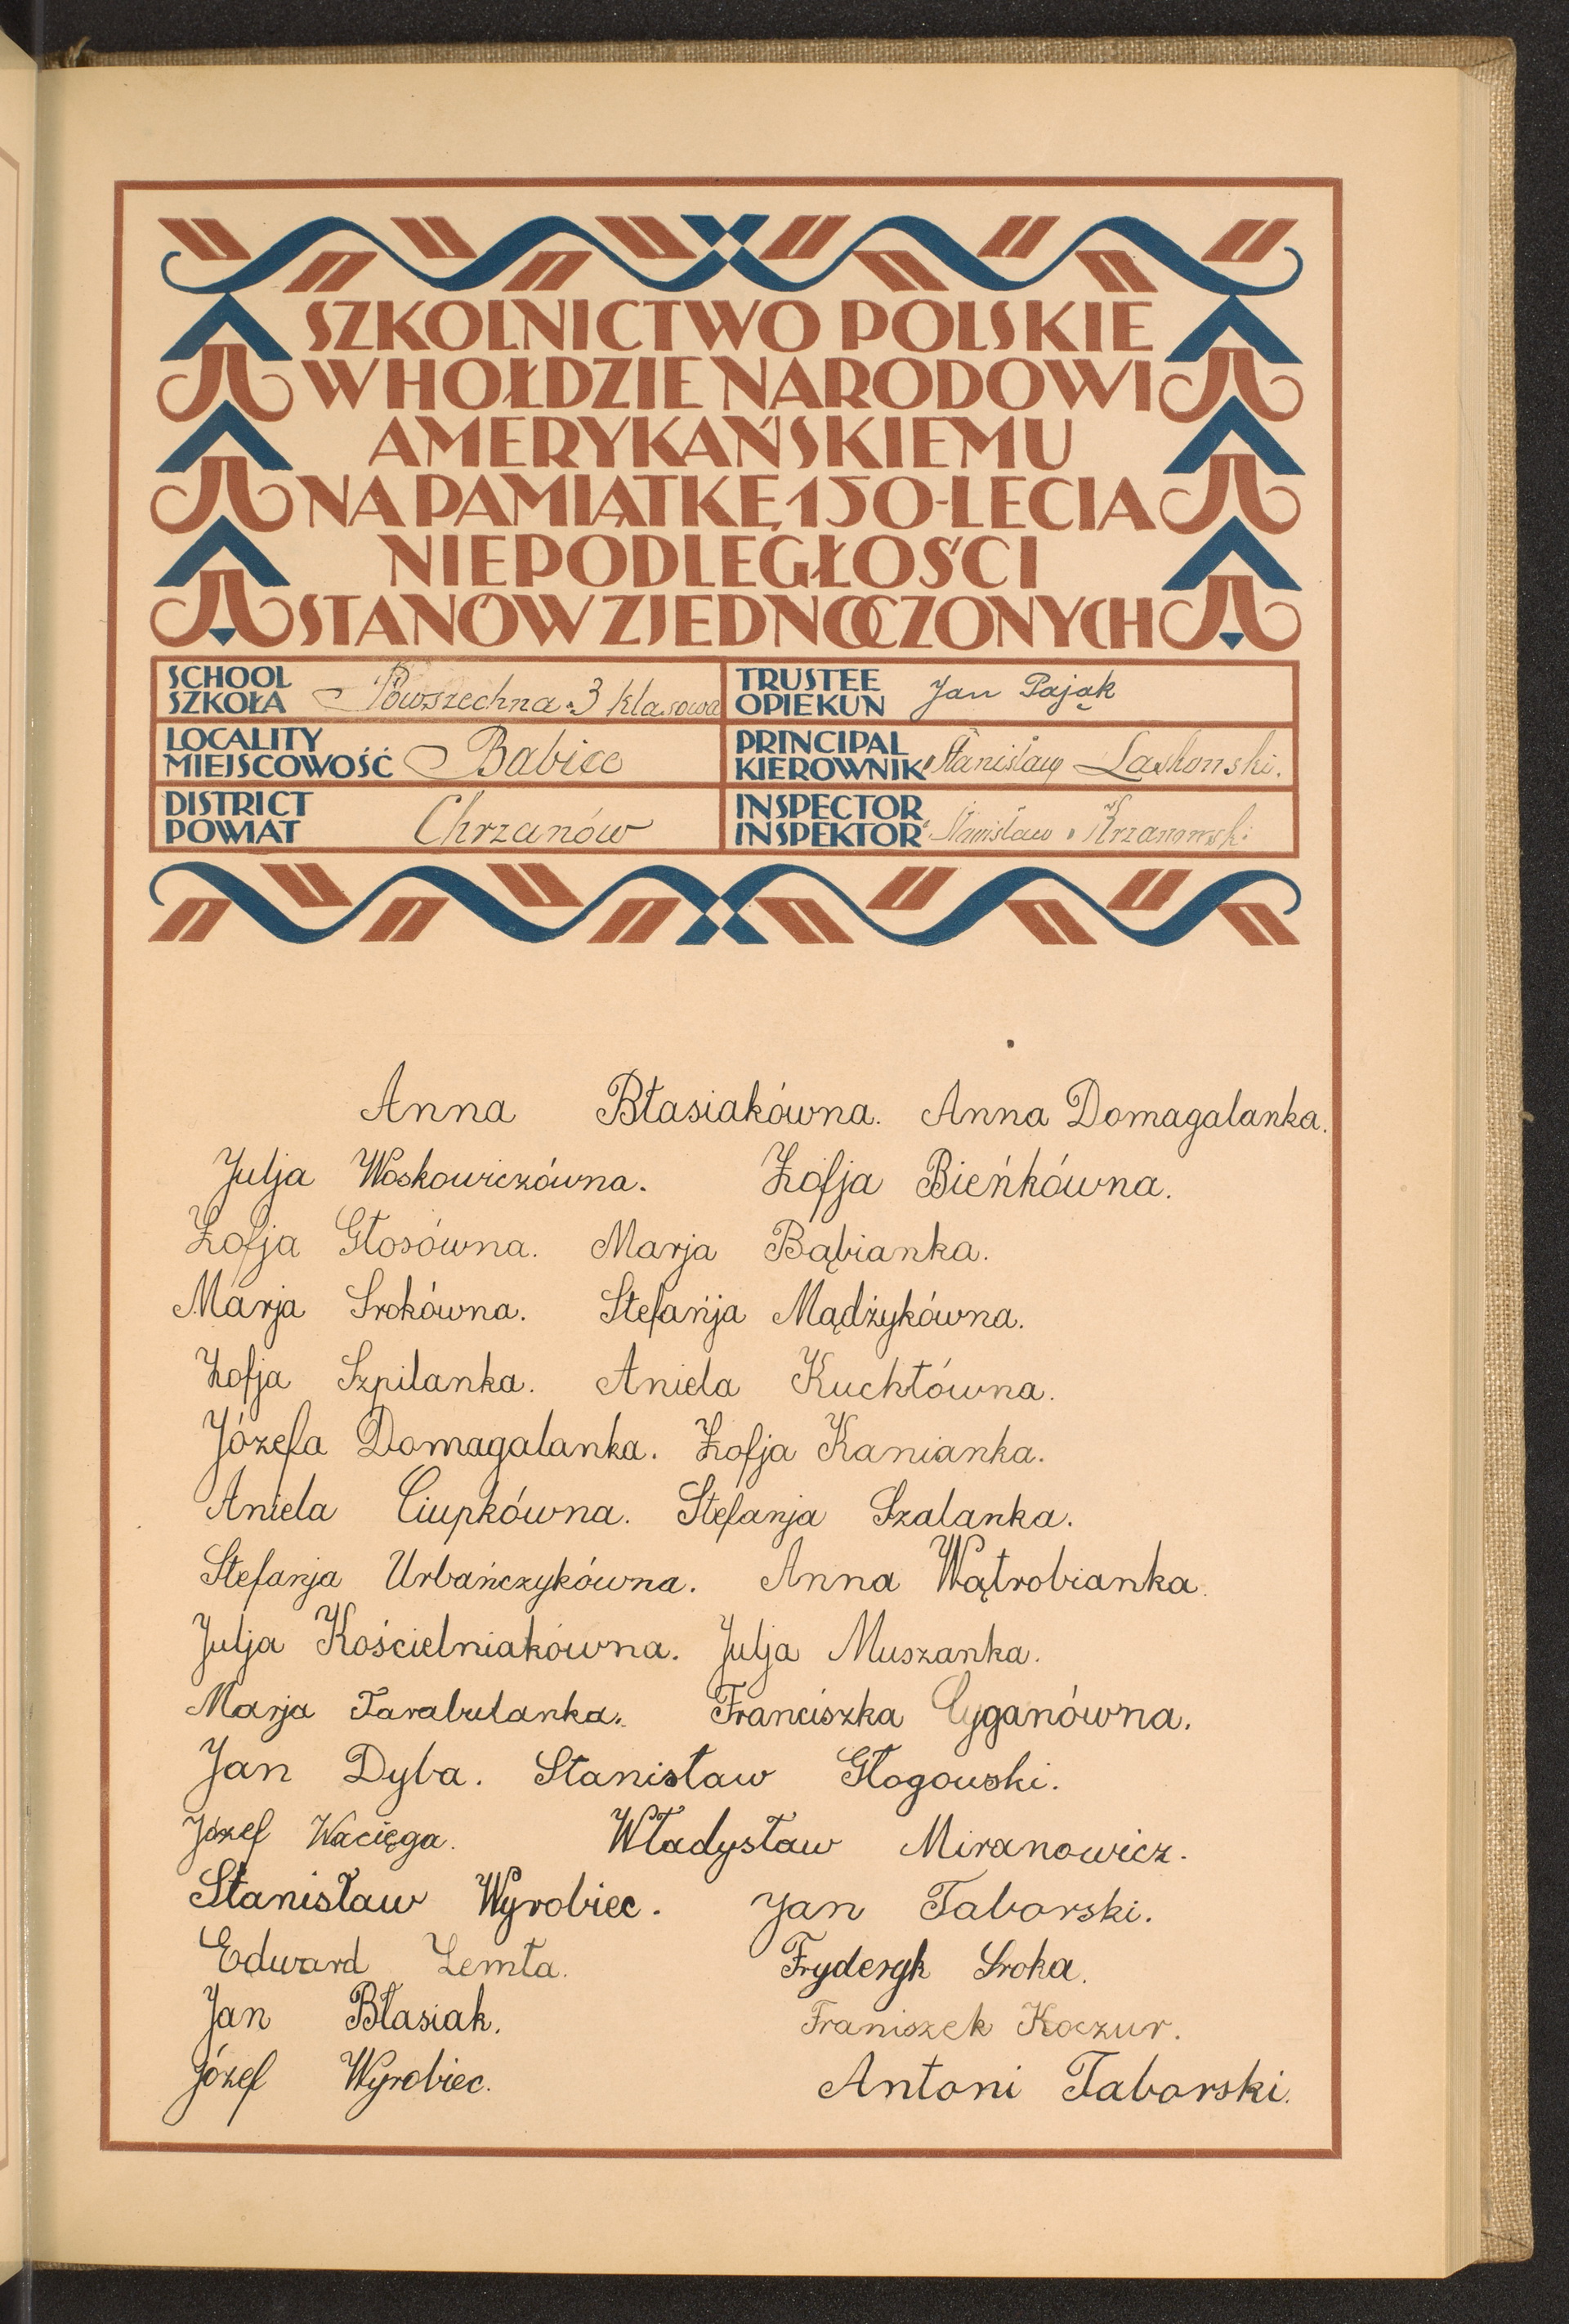 SZKOLNICTWO POLSKIE
W HOŁDZIE NARODOWI
AMERYKAŃSKIEMU
NA PAMIĄTKĘ 150-LECIA
NIEPODLEGŁOŚCI
STANÓW ZJEDNOCZONYCH
SCHOOL
SZKOŁA Powszechna 3 klasowa
TRUSTEE
OPIEKUN Jan Pająk
LOCALITY
MIEJSCOWOŚĆ Babice
PRINCIPAL
KIEROWNIK Stanisław Laskonski.
DISTRICT
POWIAT Chrzanów
INSPECTOR
INSPEKTOR Stanisław Krzanowski
Anna Błasiakówna. Anna Domagalanka.
Julja Woskowiczówna. Zofja Bieńkówna.
Zofja Głosówna. Marja Bąbianka.
Marja Srokówna. Stefańja Mądżykówna.
Zofja Szpilanka. Aniela Kuchtówna.
Józefa Domagalanka. Zofja Kanianka.
Aniela Ciupkówna. Stefanja Szalanka.
Stefanja Urbańczykówna. Anna Wątrobianka.
Julja Kościelniakówna. Julja Muszanka.
Marja Tarabulanka. Franciszka Cyganówna.
Jan Dyba. Stanisław Głogowski.
Józef Wacięga. Władysław Miranowicz.
Stanisław Wyrobiec. Jan Taborski.
Edward Zemła. Fryderyk Sroka.
Jan Błasiak. Franiszek Koczur.
Józef Wyrobiec. Antoni Taborski.